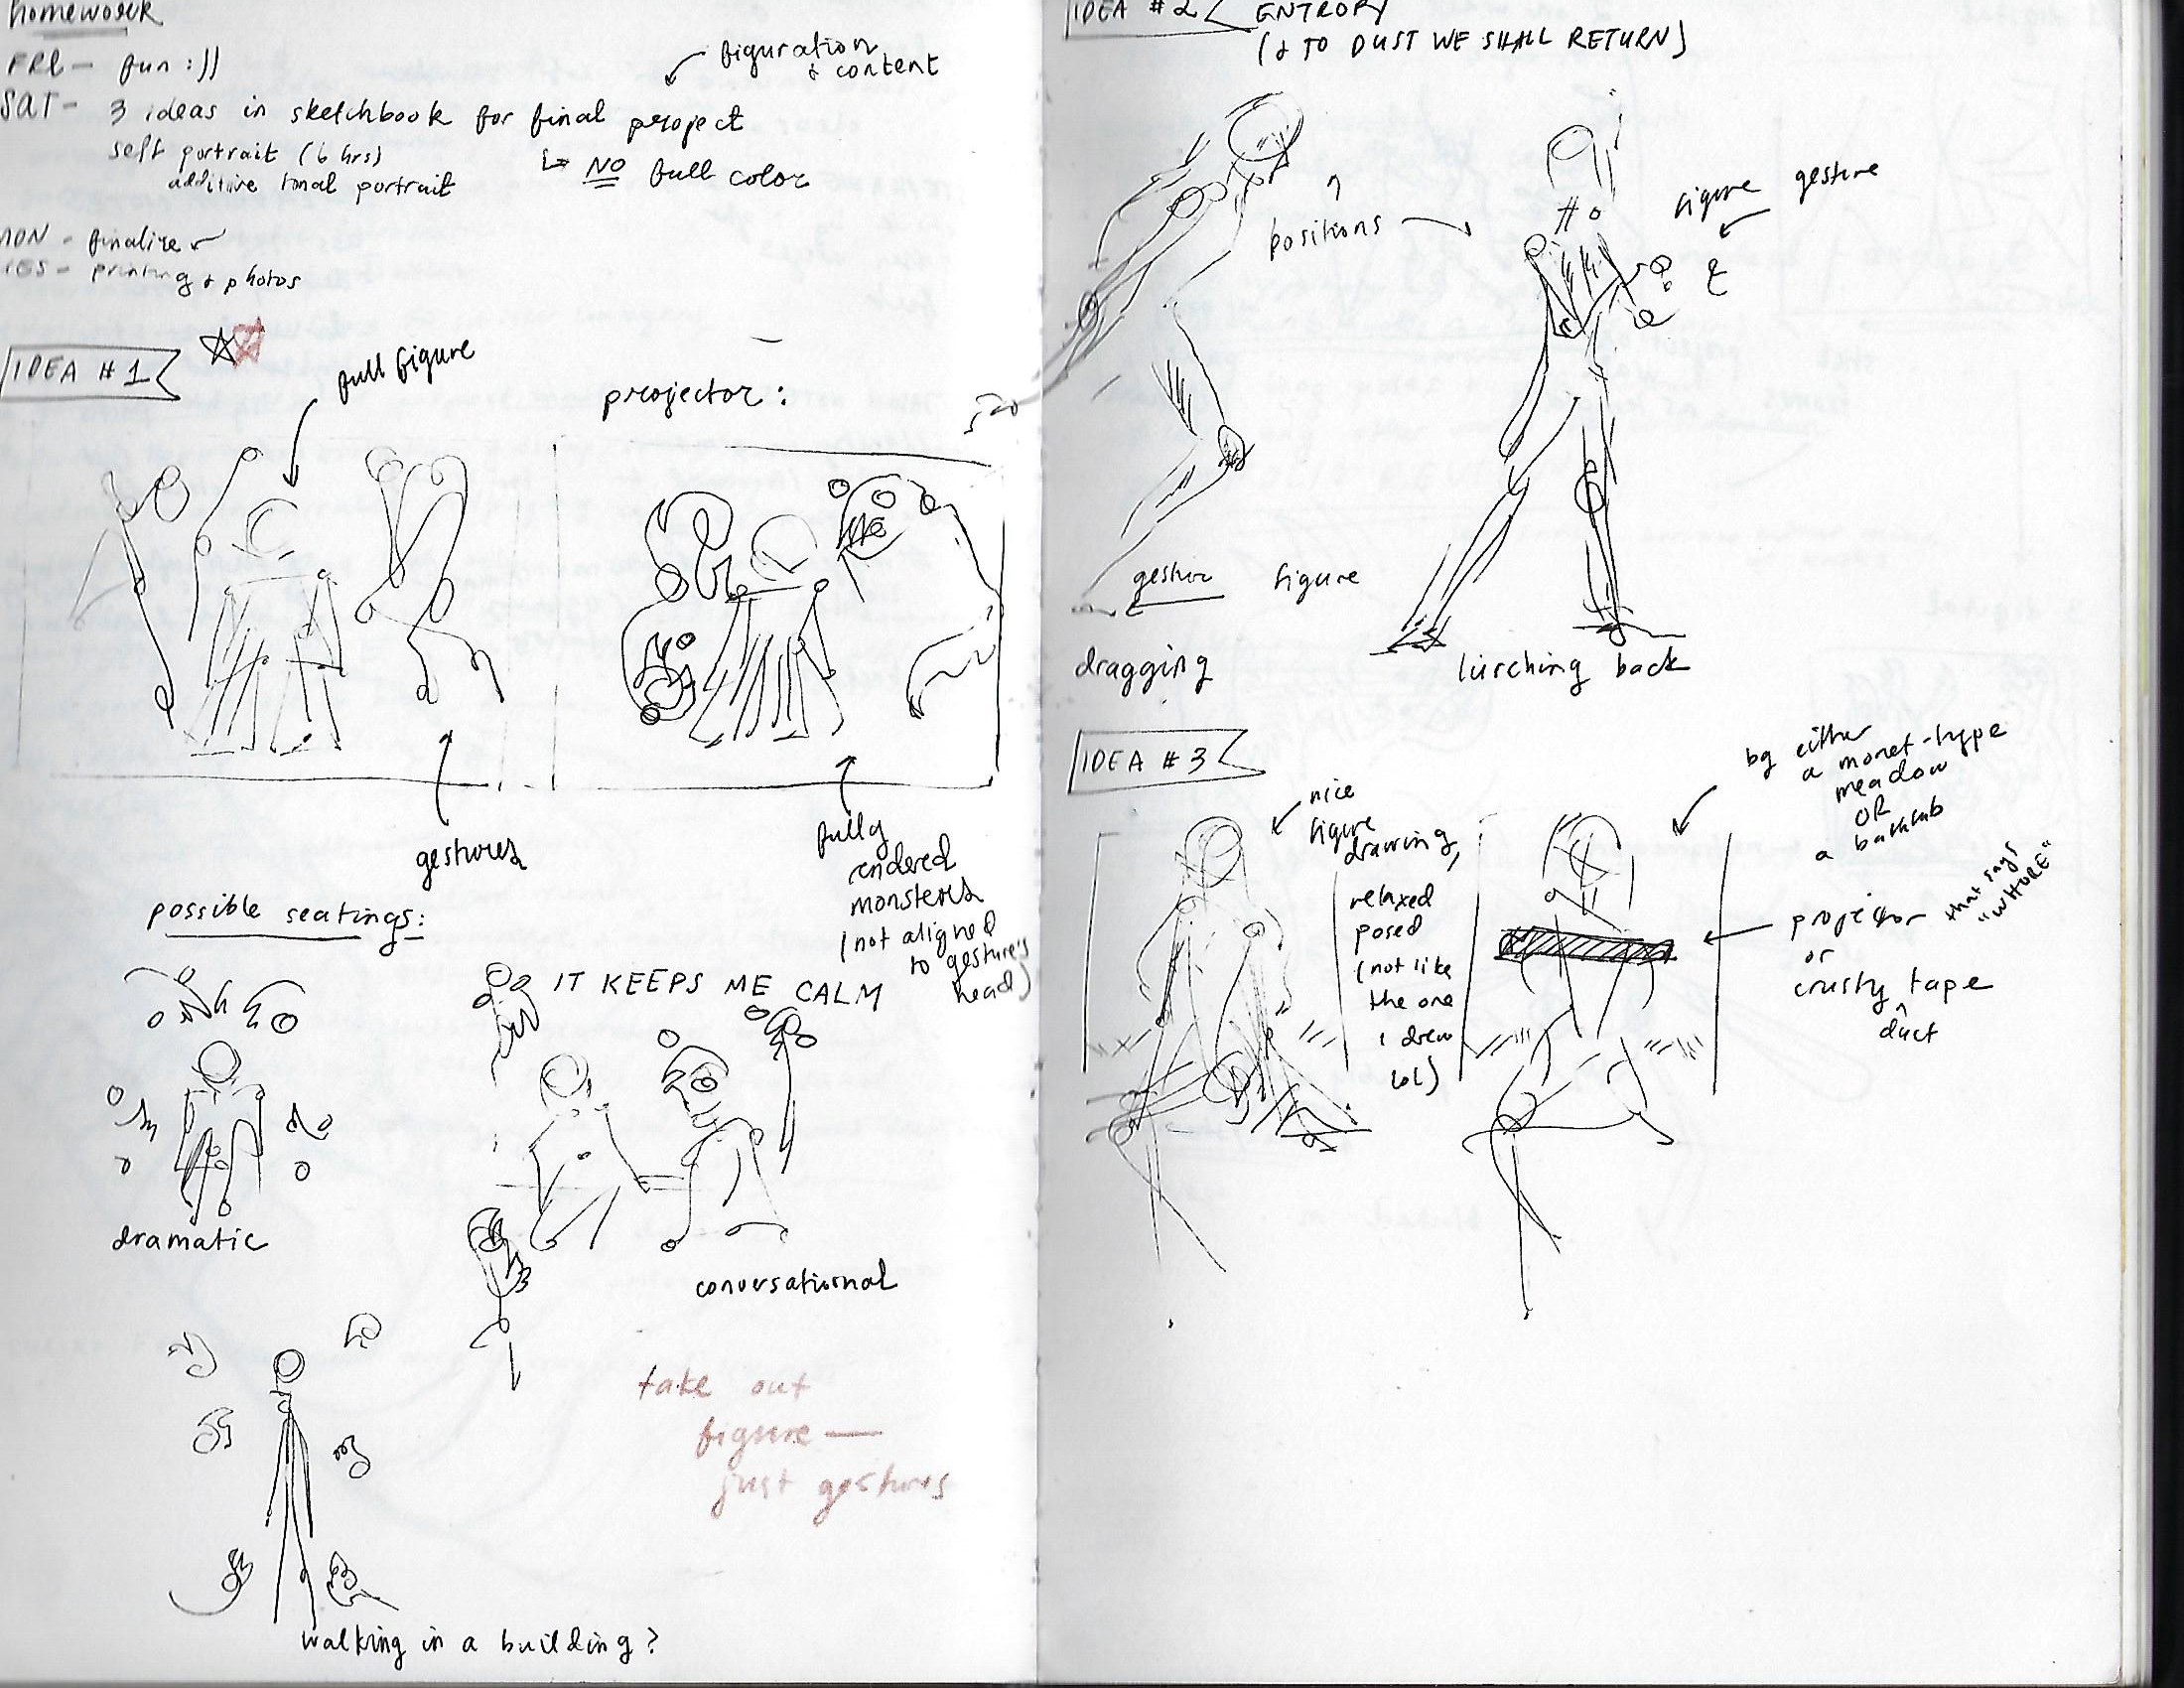 homework
FRI - fun :))
SAT - 3 ideas in sketchbook for final project
figuration
& content
self portrait (6 hrs)
additive tonal portrait
↳ NO full color
MON - finalize
TUES - printing & photos
IDEA #1
full figure
projector:
gestures
fully
rendered
monsters
(not aligned
to gesture's
head)
possible seatings:
IT KEEPS ME CALM
dramatic
conversational
take out
figure —
just gestures
walking in a building?
IDEA #2
ENTROPY
(& TO DUST WE SHALL RETURN)
positions
figure gesture
gesture figure
dragging
lurching back
IDEA #3
nice
figure
drawing,
relaxed
posed
(not like
the one
I drew
lol)
bg either
a monet-type
meadow
OR
a bathtub
projector that says
"WHORE"
or
crusty tape
duct